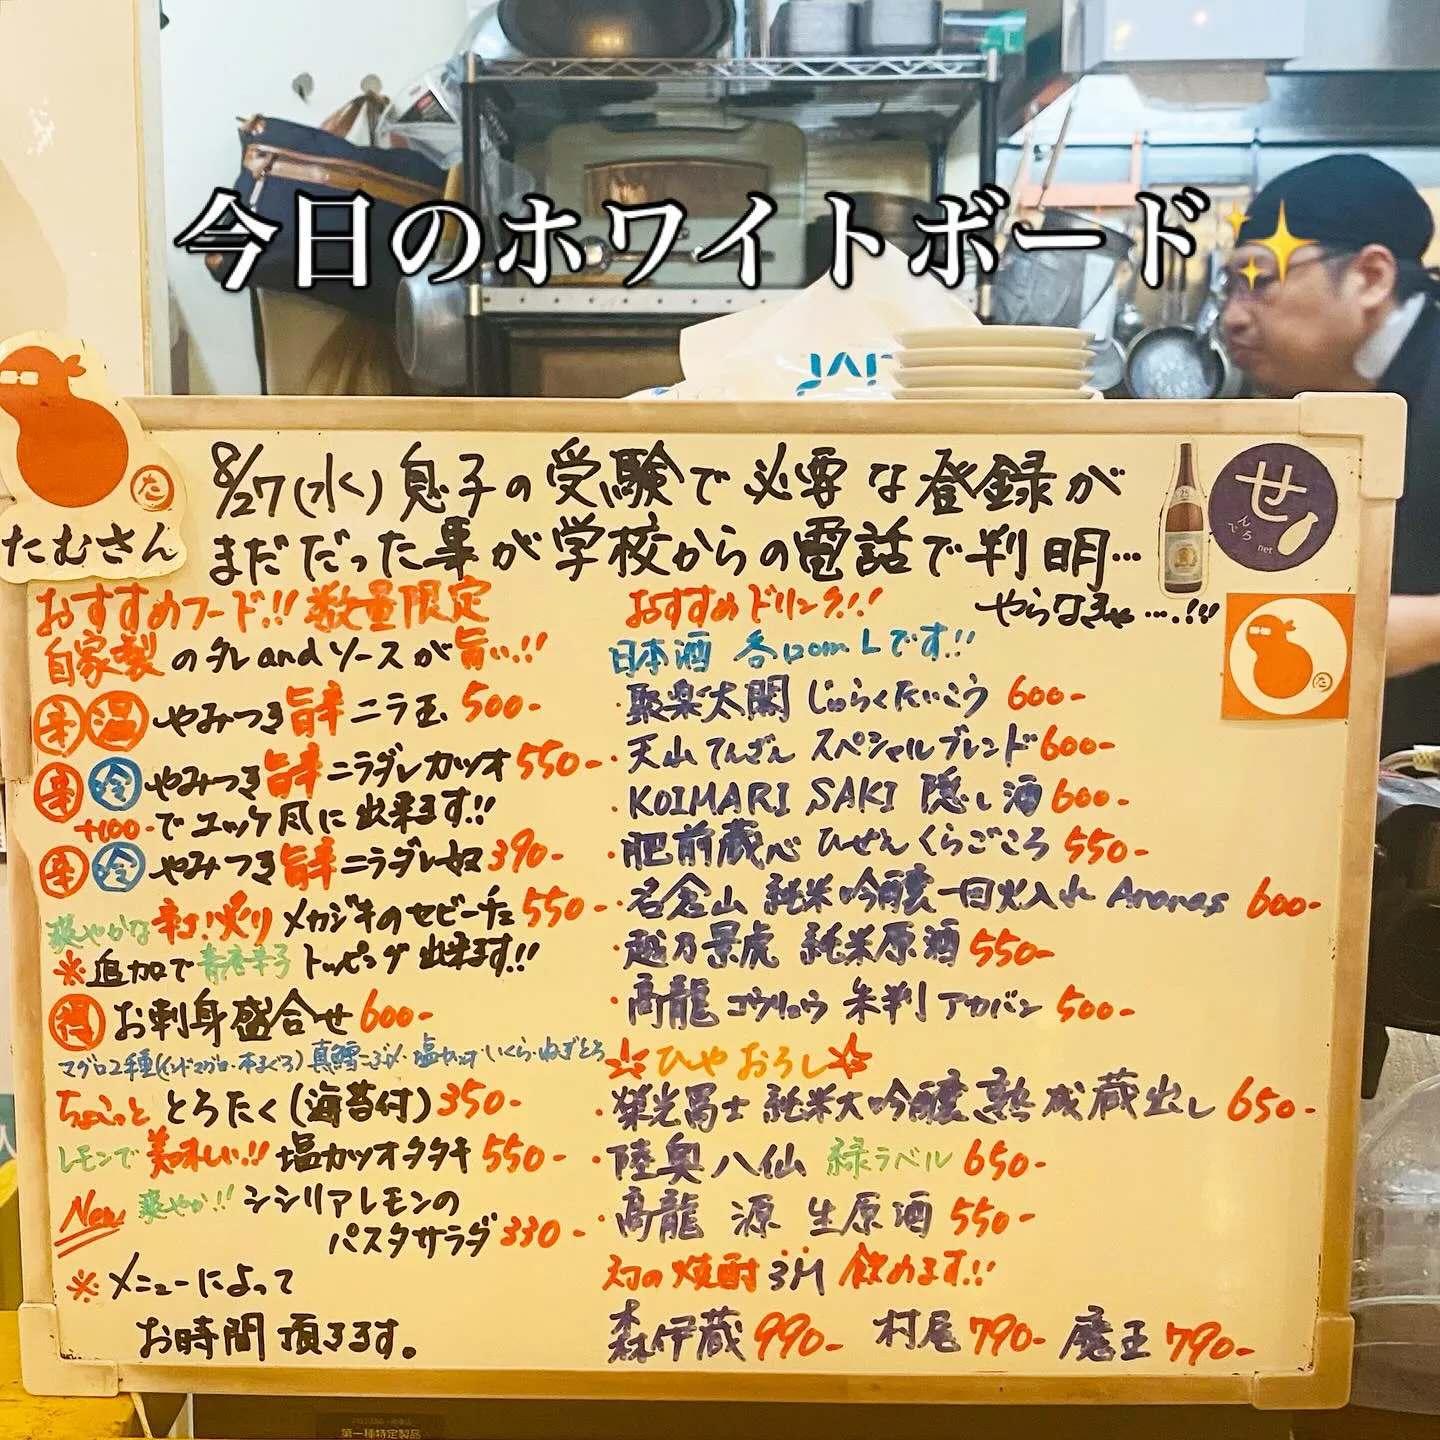 今日のホワイトボード✨
JAP
た
たむさん
8/27(水)息子の受験で必要な登録が
まだだった事が学校からの電話で判明…
やらなきゃ…!!!
せ
でしら
net
おすすめフード!!数量限定
自家製のタレandソースが旨い!!
辛 温 やみつき旨辛ニラ玉 500-
辛 冷 やみつき旨辛ニラダレカツオ 550-
+100-でユッケ風に出来ます!!
辛 冷 やみつき旨辛ニラダレ奴 390-
爽やかな辛さ!炙りメカジキのセビーチェ 550-
※追加で青唐辛子トッピング出来ます!!
得 お刺身盛合せ 600-
マグロ2種(インドマグロ・本まぐろ)真鯛こぶ〆・塩カツオ・いくら・ねぎとろ
ちょこっととろたく(海苔付)350-
レモンで美味しい!!塩カツオタタキ 550-
New 爽やか!!シシリアレモンの
パスタサラダ 330-
※メニューによって
お時間頂きます。
おすすめドリンク!!
日本酒 各120mLです!!
・聚楽太閤 じゅらくたいこう 600-
・天山 てんざん スペシャルブレンド 600-
・KOIMARI SAKI 隠し酒 600-
・肥前蔵心 ひぜんくらごころ 550-
・名倉山 純米吟醸一回火入れ Ananas 600-
・越乃景虎 純米原酒 550-
・高龍 コウリュウ 朱判 アカバン 500-
☆ひやおろし☆
・榮光冨士 純米大吟醸 熟成蔵出し 650-
・陸奥八仙 緑ラベル 650-
・高龍 源 生原酒 550-
幻の焼酎3M 飲めます!!
森伊蔵 990- 村尾 790- 魔王 790-
第一種特定製品